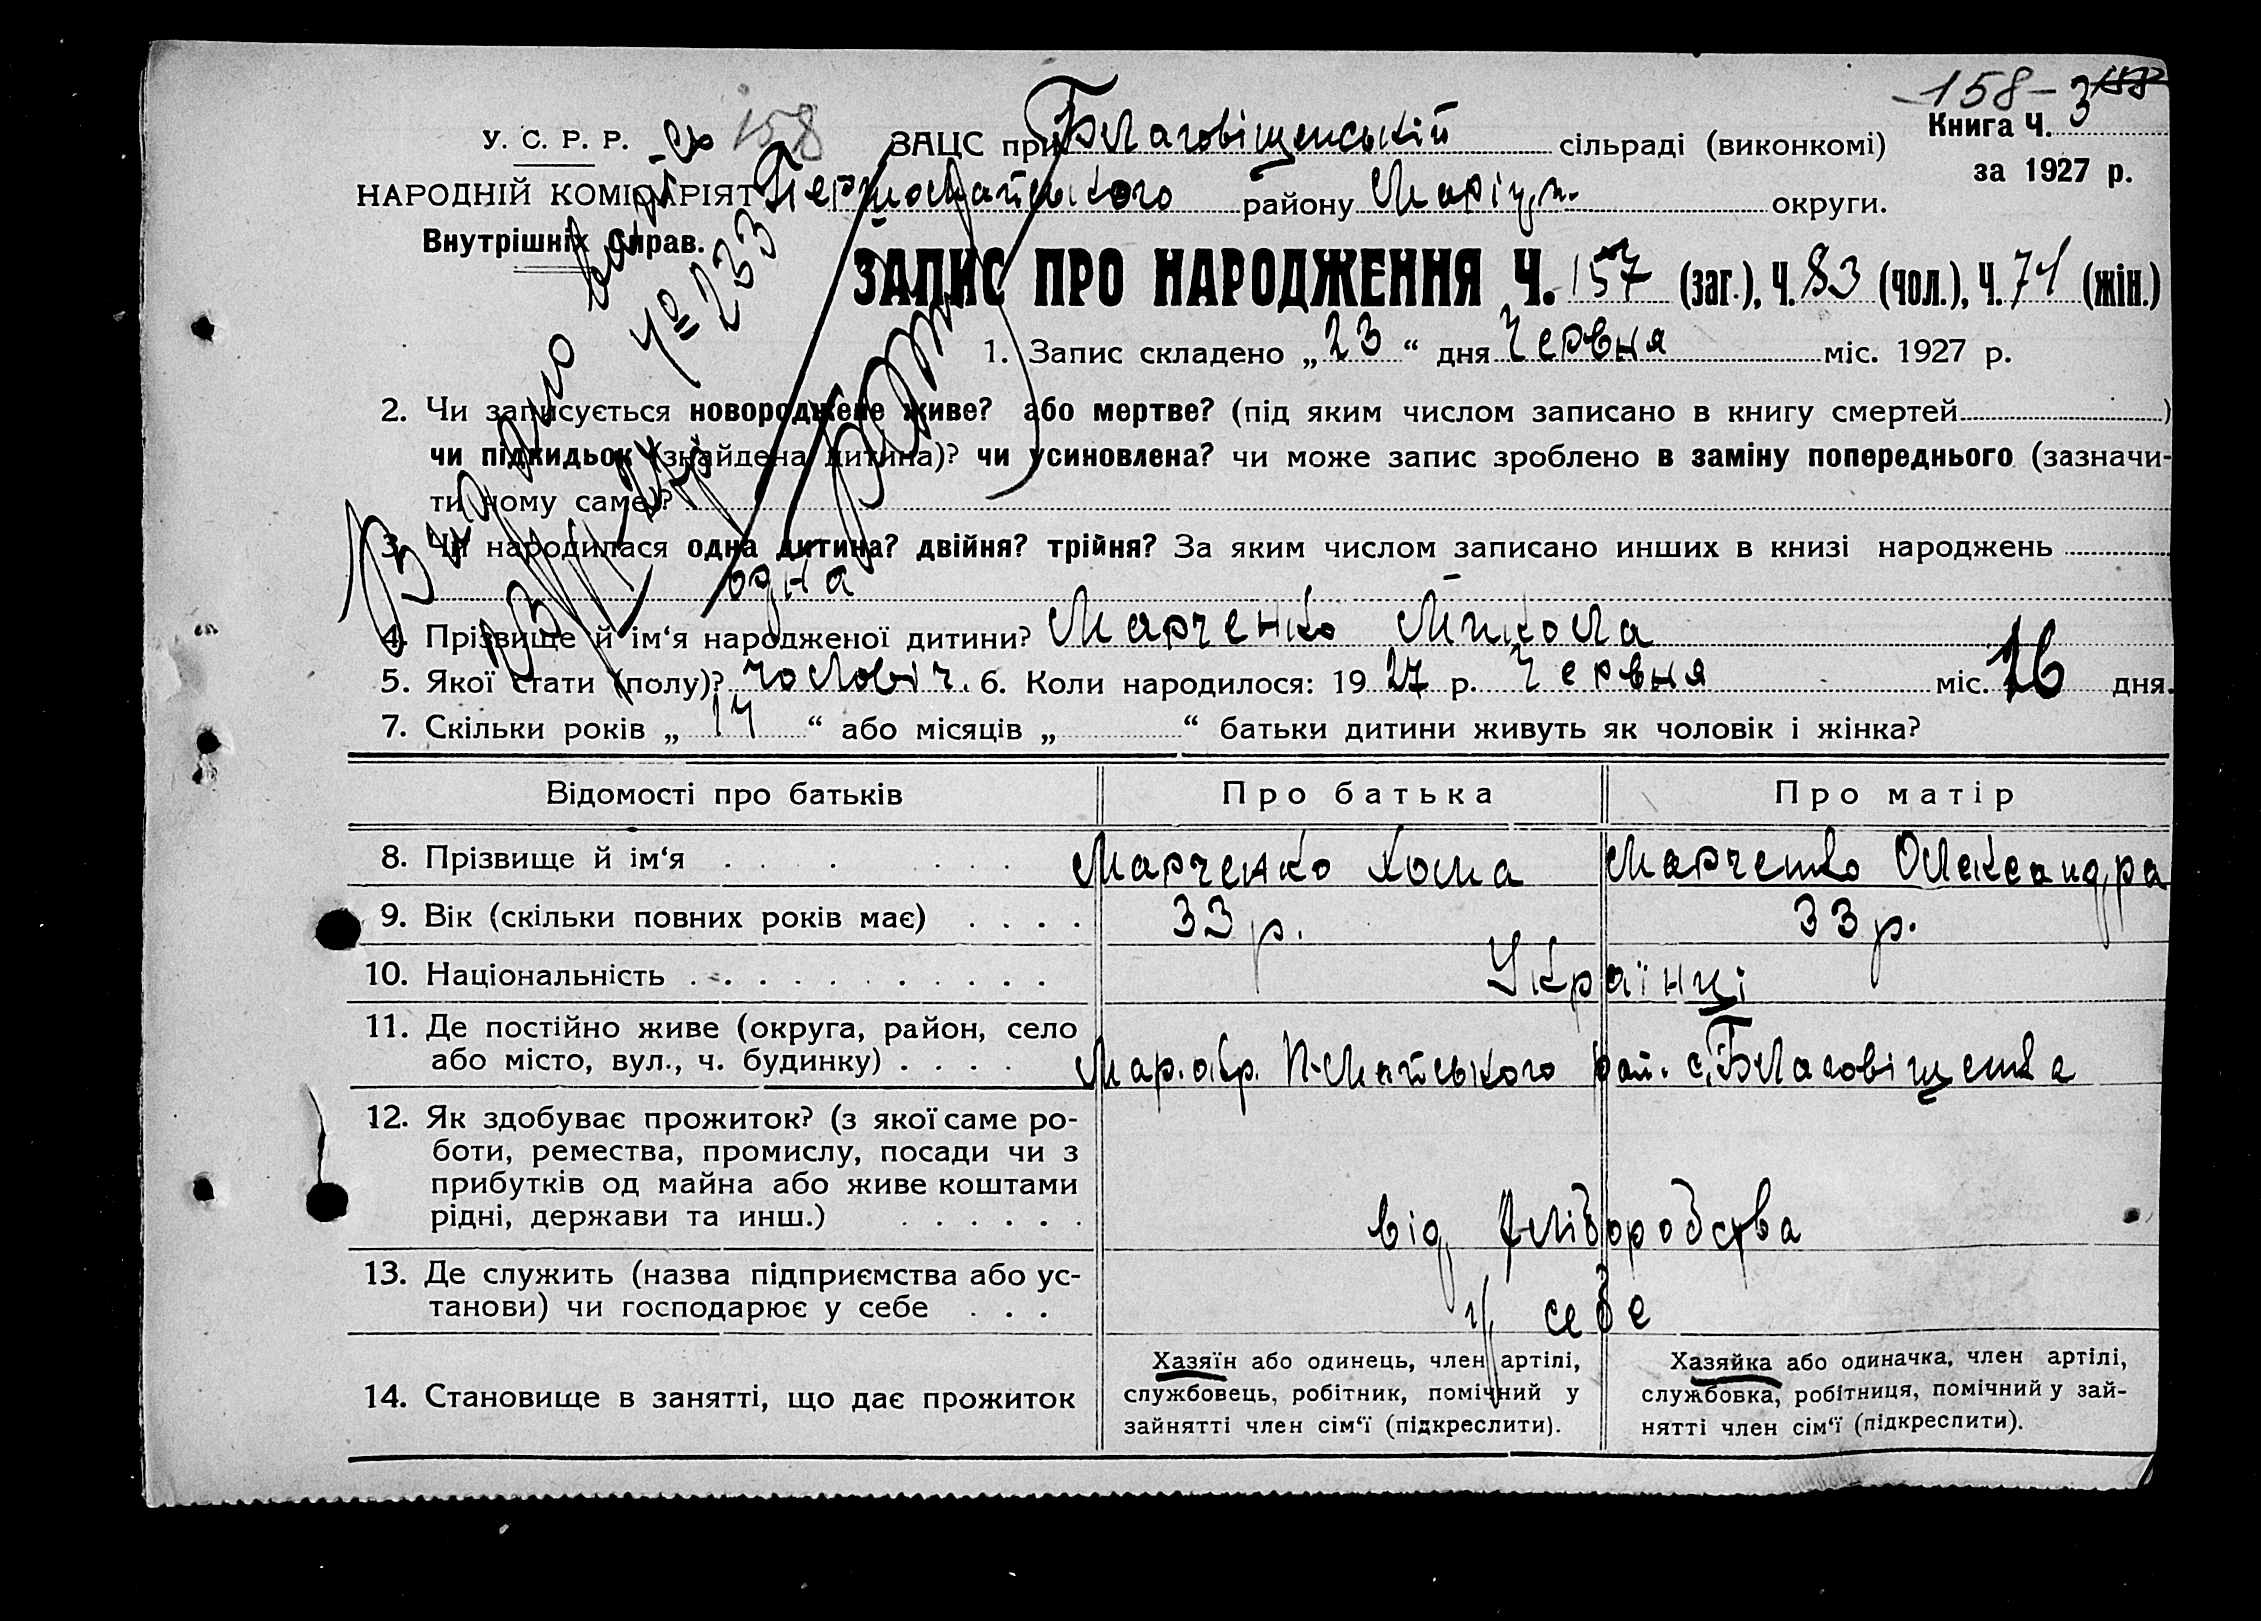 158 – 3 158
У. С. Р. Р. 158 ЗАЦС при Благовіщенській сільраді (виконкомі) Книга Ч. 3
за 1927 р.
НАРОДНІЙ КОМІСАРІЯТ Першомайського району Маріуп. округи.
Внутрішніх Справ.
ЗАПИС ПРО НАРОДЖЕННЯ Ч. 157 (заг.), Ч. 83 (чол.), Ч. 74 (жін.)
Видано
№ 233
1. Запис складено „ 23 “ дня Червня міс. 1927 р.
2. Чи записується новороджене живе? або мертве? (під яким числом записано в книгу смертей )
чи підкидьок (знайдена дитина)? чи усиновлена? чи може запис зроблено в заміну попереднього (зазначи-
ти чому саме)?
3. Чи народилася одна дитина? двійня? трійня? За яким числом записано инших в книзі народжень
одна
4. Прізвище й ім‘я народженої дитини? Марченко Микола
5. Якої стати (полу)? чоловіч. 6. Коли народилося: 19 27 р. Червня міс. 16 дня.
7. Скільки років „ 14 “ або місяців „ “ батьки дитини живуть як чоловік і жінка?
Відомості про батьків Про батька Про матір
8. Прізвище й ім‘я Марченко Хома Марченко Олександра
9. Вік (скільки повних років має) 33 р. 33 р.
10. Національність Українці
11. Де постійно живе (округа, район, село
або місто, вул., ч. будинку) Мар. окр. П-Майського рай. с. Благовіщенка
12. Як здобуває прожиток? (з якої саме ро-
боти, ремества, промислу, посади чи з
прибутків од майна або живе коштами
рідні, держави та инш.) від хліборобства
13. Де служить (назва підприємства або ус-
танови) чи господарює у себе у себе
14. Становище в занятті, що дає прожиток
Хазяїн або одинець, член артілі,
службовець, робітник, помічний у
зайнятті член сім‘ї (підкреслити).
Хазяйка або одиначка, член артілі,
службовка, робітниця, помічний у зай-
нятті член сім‘ї (підкреслити).